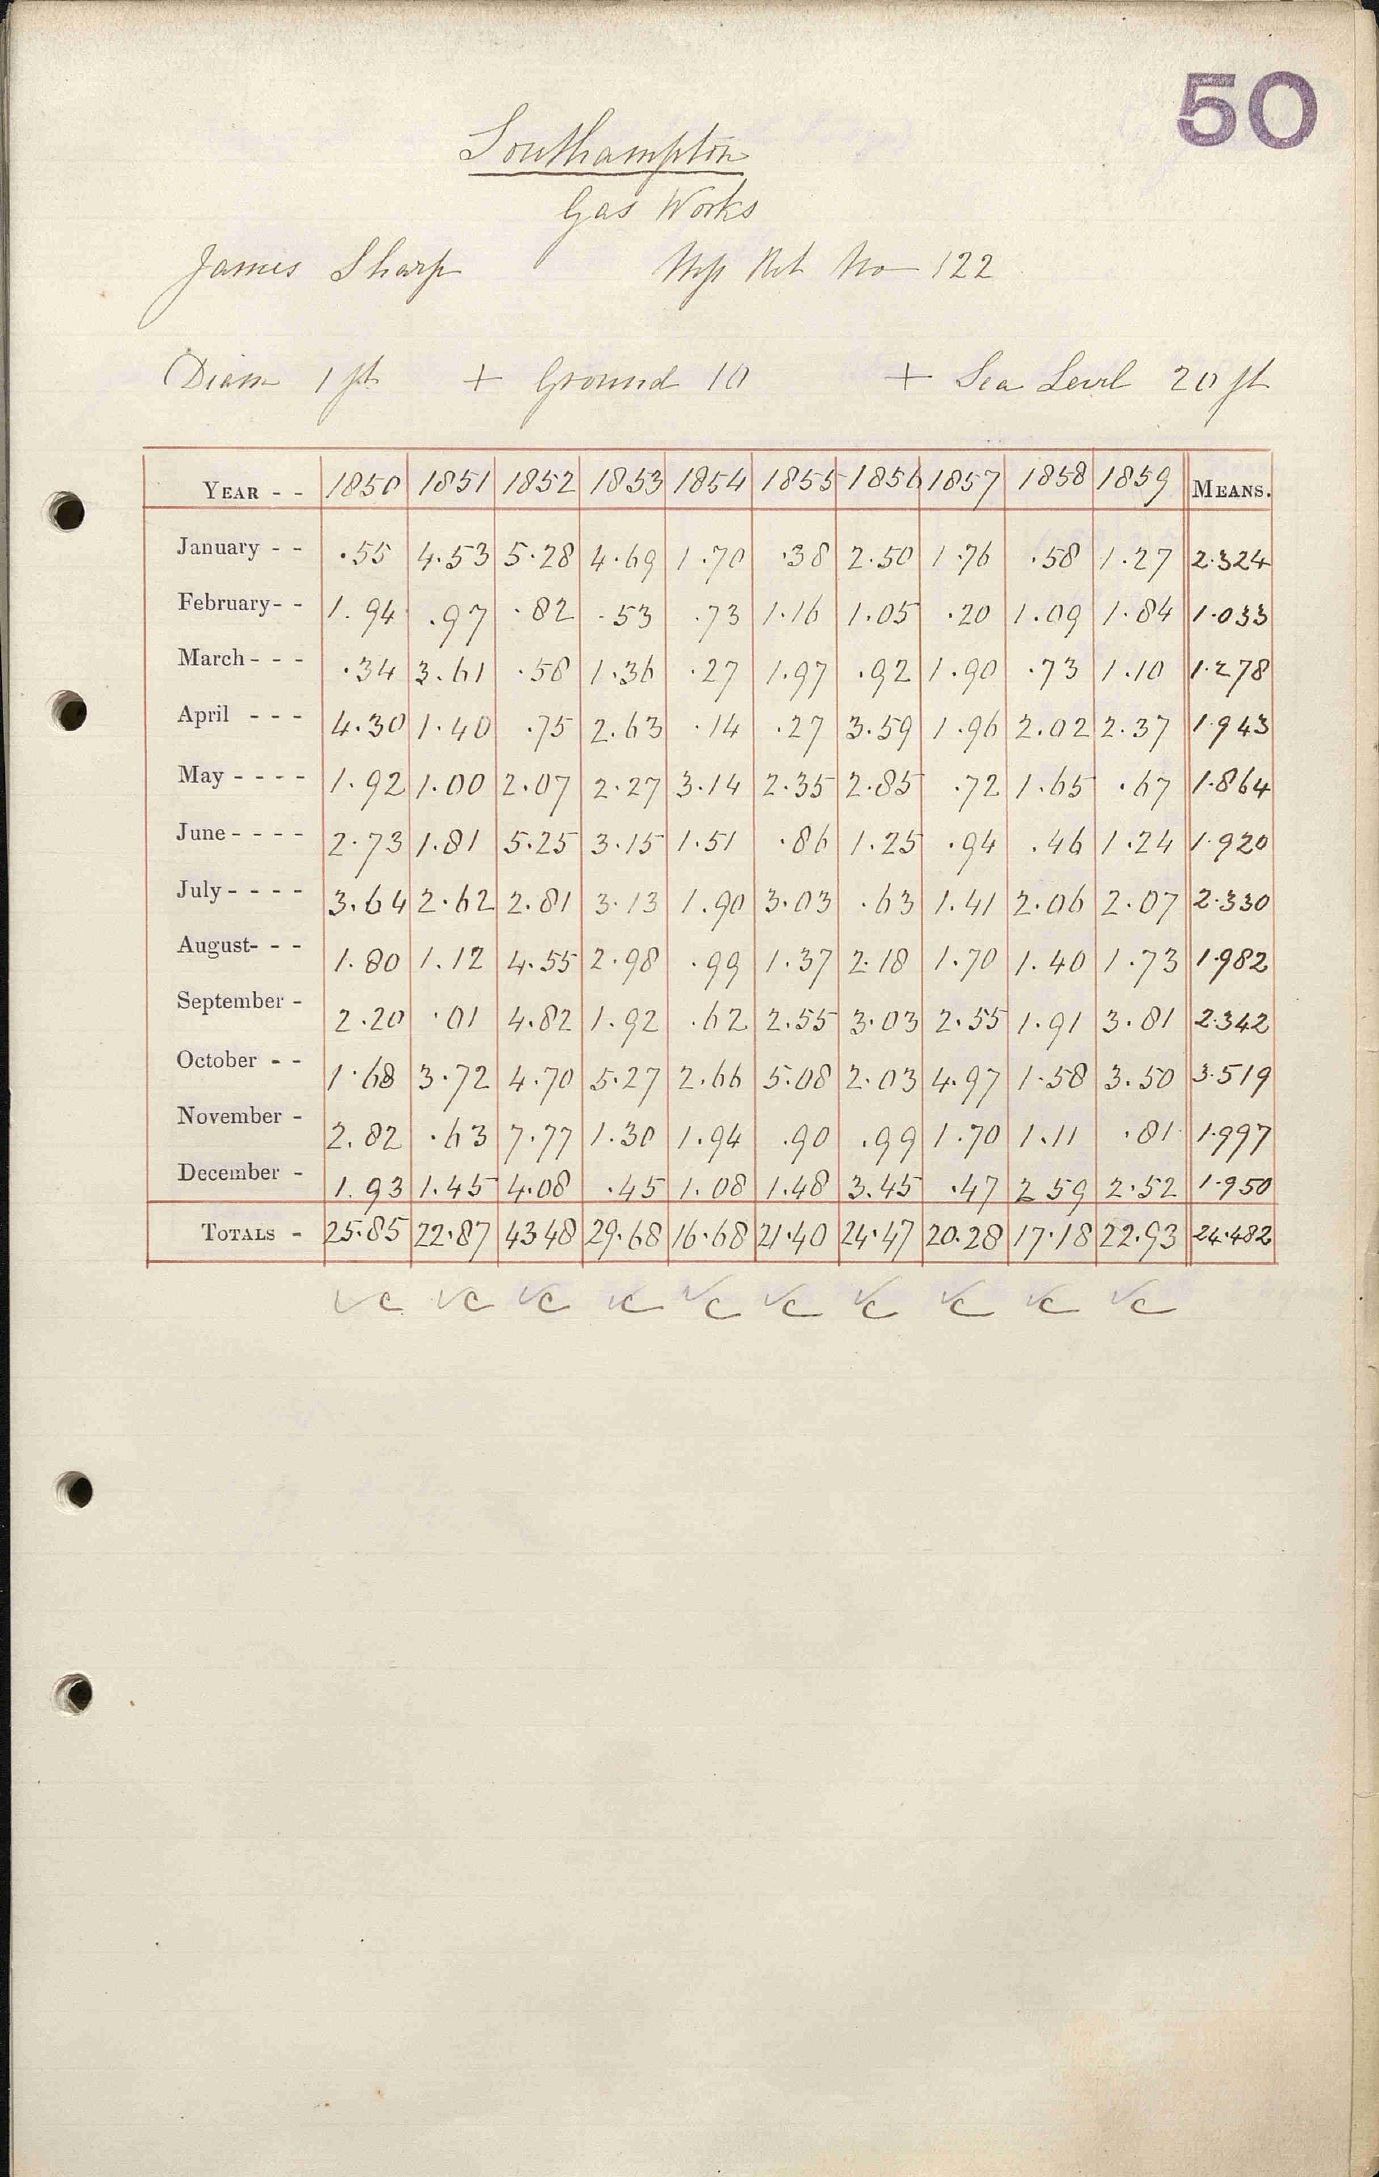 50
Southampton
Gas Works
James Sharp No 122
Diam 1 ft + Ground 10 + Sea Level 20 ft
YEAR - - 1850 1851 1852 1853 1854 1855 1856 1857 1858 1859 MEANS.
January - - .55 4.53 5.28 4.69 1.70 .38 2.50 1.76 .58 1.27 2.324
February - - 1.94 .97 .82 .53 .73 1.16 1.05 .20 1.09 1.84 1.033
March - - - .34 3.61 .58 1.36 .27 1.97 .92 1.90 .73 1.10 1.278
April - - - 4.30 1.40 .75 2.63 .14 .27 3.59 1.96 2.02 2.37 1.943
May - - - - 1.92 1.00 2.07 2.27 3.14 2.35 2.85 .72 1.65 .67 1.864
June - - - - 2.73 1.81 5.25 3.15 1.51 .86 1.25 .94 .46 1.24 1.920
July - - - - 3.64 2.62 2.81 3.13 1.90 3.03 .63 1.41 2.06 2.07 2.330
August - - - 1.80 1.12 4.55 2.98 .99 1.37 2.18 1.70 1.40 1.73 1.982
September - 2.20 .01 4.82 1.92 .62 2.55 3.03 2.55 1.91 3.81 2.342
October - - 1.68 3.72 4.70 5.27 2.66 5.08 2.03 4.97 1.58 3.50 3.519
November - 2.82 .63 7.77 1.30 1.94 .90 .99 1.70 1.11 .81 1.997
December - 1.93 1.45 4.08 .45 1.08 1.48 3.45 .47 2 59 2.52 1.950
TOTALS - 25.85 22.87 43 48 29.68 16.68 21.40 24.47 20.28 17.18 22.93 24.482
✓c ✓c ✓c ✓c ✓c ✓c ✓c ✓c ✓c ✓c